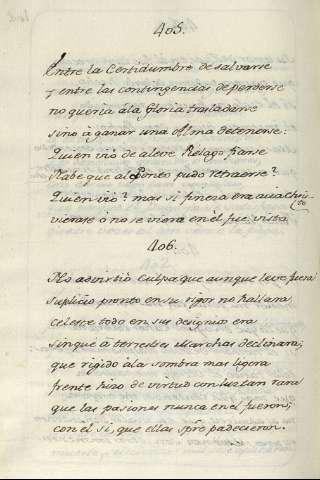 405.
Entre la Certidumbre de salvarse
y entre las contingencias de perderse
no queria à la Gloria trasladarse
sino à ganar una Alma detenerse:
Quien viò de aleve Pielago fiarse
Nabe que al Ponto pudo retraerse?
Quien viò? mas si fineza era aun à Chris-
to
vierase ò no se viera en él fue vista.
406.
No advirtiò culpa que aunque leve fuera
suplicio pronto en su rigor no hallara,
celeste todo en sus designios era
sin que à terrestres marchas declinara;
que rigido à la sombra mas ligera
frente hizo de virtud con luz tan rara
que las pasiones nunca en él fueron,
con él si, que ellas spre padecieron.